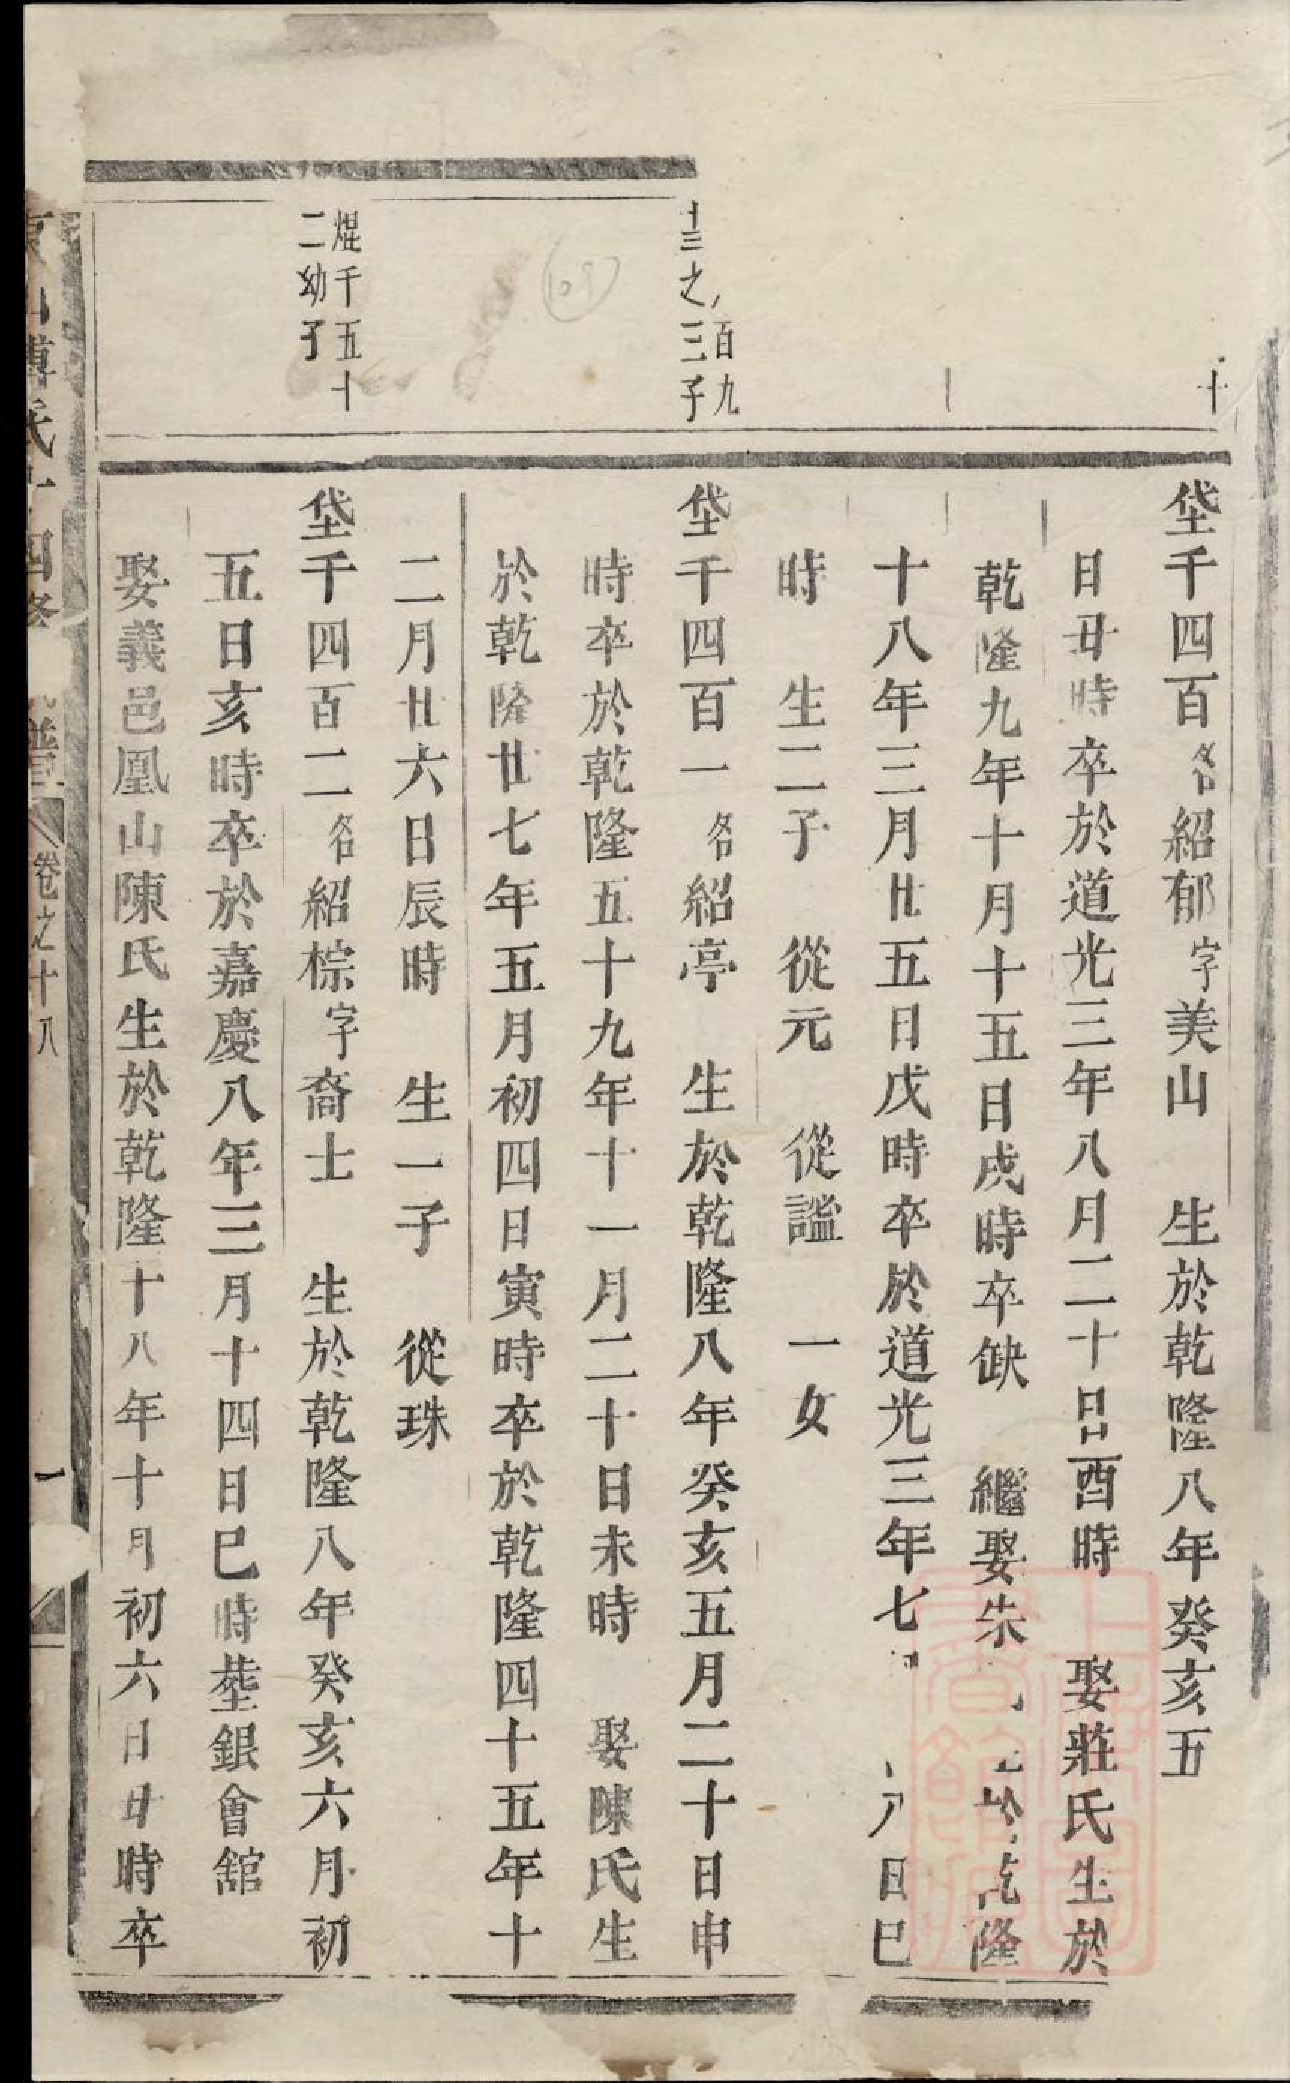 十
垡千四百名紹郁字美山 生於乾隆八年癸亥五
日丑時卒於道光三年八月二十日酉時 娶莊氏生於
乾隆九年十月十五日戌時卒缺 繼娶朱 於乾隆
十八年三月廿五日戊時卒於道光三年七 日巳
時 生二子 從元 從謐 一女
百九
十三之三子
垡千四百一名紹亭 生於乾隆八年癸亥五月二十日申
時卒於乾隆五十九年十一月二十日未時 娶陳氏生
於乾隆廿七年五月初四日寅時卒於乾隆四十五年十
二月廿六日辰時 生一子 從珠
焜千五十
二幼子
垡千四百二名紹棕字裔士 生於乾隆八年癸亥六月初
五日亥時卒於嘉慶八年三月十四日巳時塟銀會舘
娶義邑凰山陳氏生於乾隆十八年十月初六日丑時卒
山 氏十四修 譜
卷之十八
一
109
上海圖書館藏